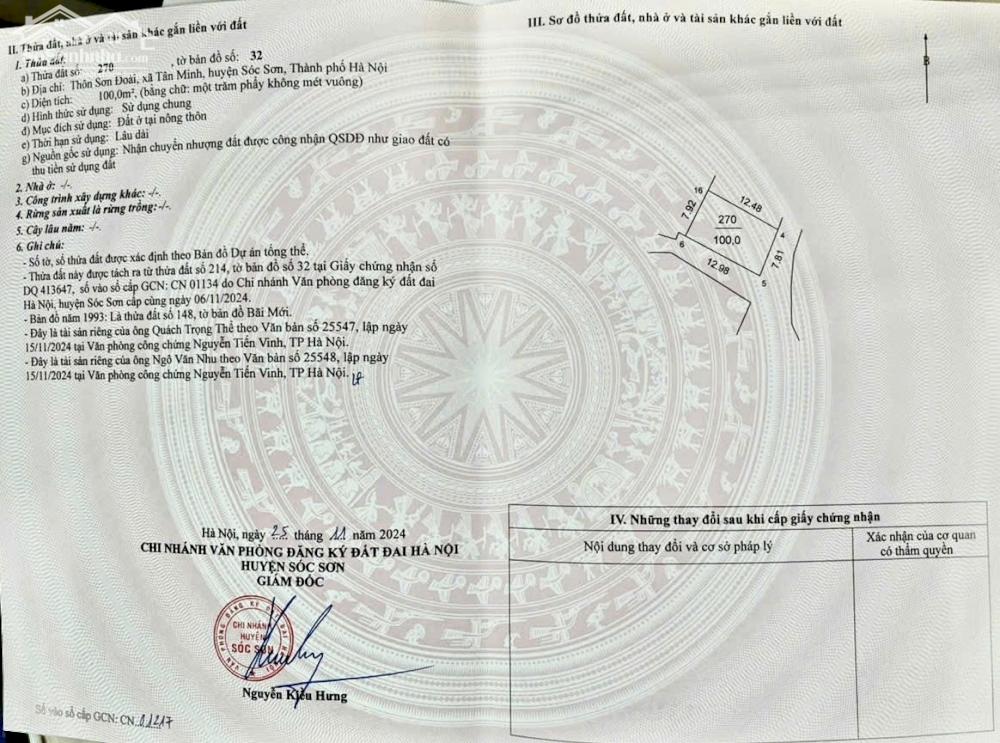 II. Thửa đất, nhà ở và tài sản khác gắn liền với đất
1. Thửa đất:
a) Thửa đất số: 270 , tờ bản đồ số: 32
b) Địa chỉ: Thôn Sơn Đoài, xã Tân Minh, huyện Sóc Sơn, Thành phố Hà Nội
c) Diện tích: 100,0m², (bằng chữ: một trăm phẩy không mét vuông)
d) Hình thức sử dụng: Sử dụng chung
đ) Mục đích sử dụng: Đất ở tại nông thôn
e) Thời hạn sử dụng: Lâu dài
g) Nguồn gốc sử dụng: Nhận chuyển nhượng đất được công nhận QSDĐ như giao đất có
thu tiền sử dụng đất
2. Nhà ở: -/-.
3. Công trình xây dựng khác: -/-.
4. Rừng sản xuất là rừng trồng: -/-.
5. Cây lâu năm: -/-.
6. Ghi chú:
- Số tờ, số thửa đất được xác định theo Bản đồ Dự án tổng thể.
- Thửa đất này được tách ra từ thửa đất số 214, tờ bản đồ số 32 tại Giấy chứng nhận số
DQ 413647, số vào sổ cấp GCN: CN 01134 do Chi nhánh Văn phòng đăng ký đất đai
Hà Nội, huyện Sóc Sơn cấp cùng ngày 06/11/2024.
- Bản đồ năm 1993: Là thửa đất số 148, tờ bản đồ Bãi Mới.
- Đây là tài sản riêng của ông Quách Trọng Thể theo Văn bản số 25547, lập ngày
15/11/2024 tại Văn phòng công chứng Nguyễn Tiến Vinh, TP Hà Nội.
- Đây là tài sản riêng của ông Ngô Văn Nhu theo Văn bản số 25548, lập ngày
15/11/2024 tại Văn phòng công chứng Nguyễn Tiến Vinh, TP Hà Nội.
Hà Nội, ngày 25 tháng 11 năm 2024
CHI NHÁNH VĂN PHÒNG ĐĂNG KÝ ĐẤT ĐAI HÀ NỘI
HUYỆN SÓC SƠN
GIÁM ĐỐC
CHI NHÁNH
HUYỆN
SÓC SƠN
Nguyễn Kiều Hưng
Số vào sổ cấp GCN: CN 01217
III. Sơ đồ thửa đất, nhà ở và tài sản khác gắn liền với đất
B
16
12.48
7.92
270
100,0
4
6
7.81
12.98
5
IV. Những thay đổi sau khi cấp giấy chứng nhận
Nội dung thay đổi và cơ sở pháp lý
Xác nhận của cơ quan
có thẩm quyền